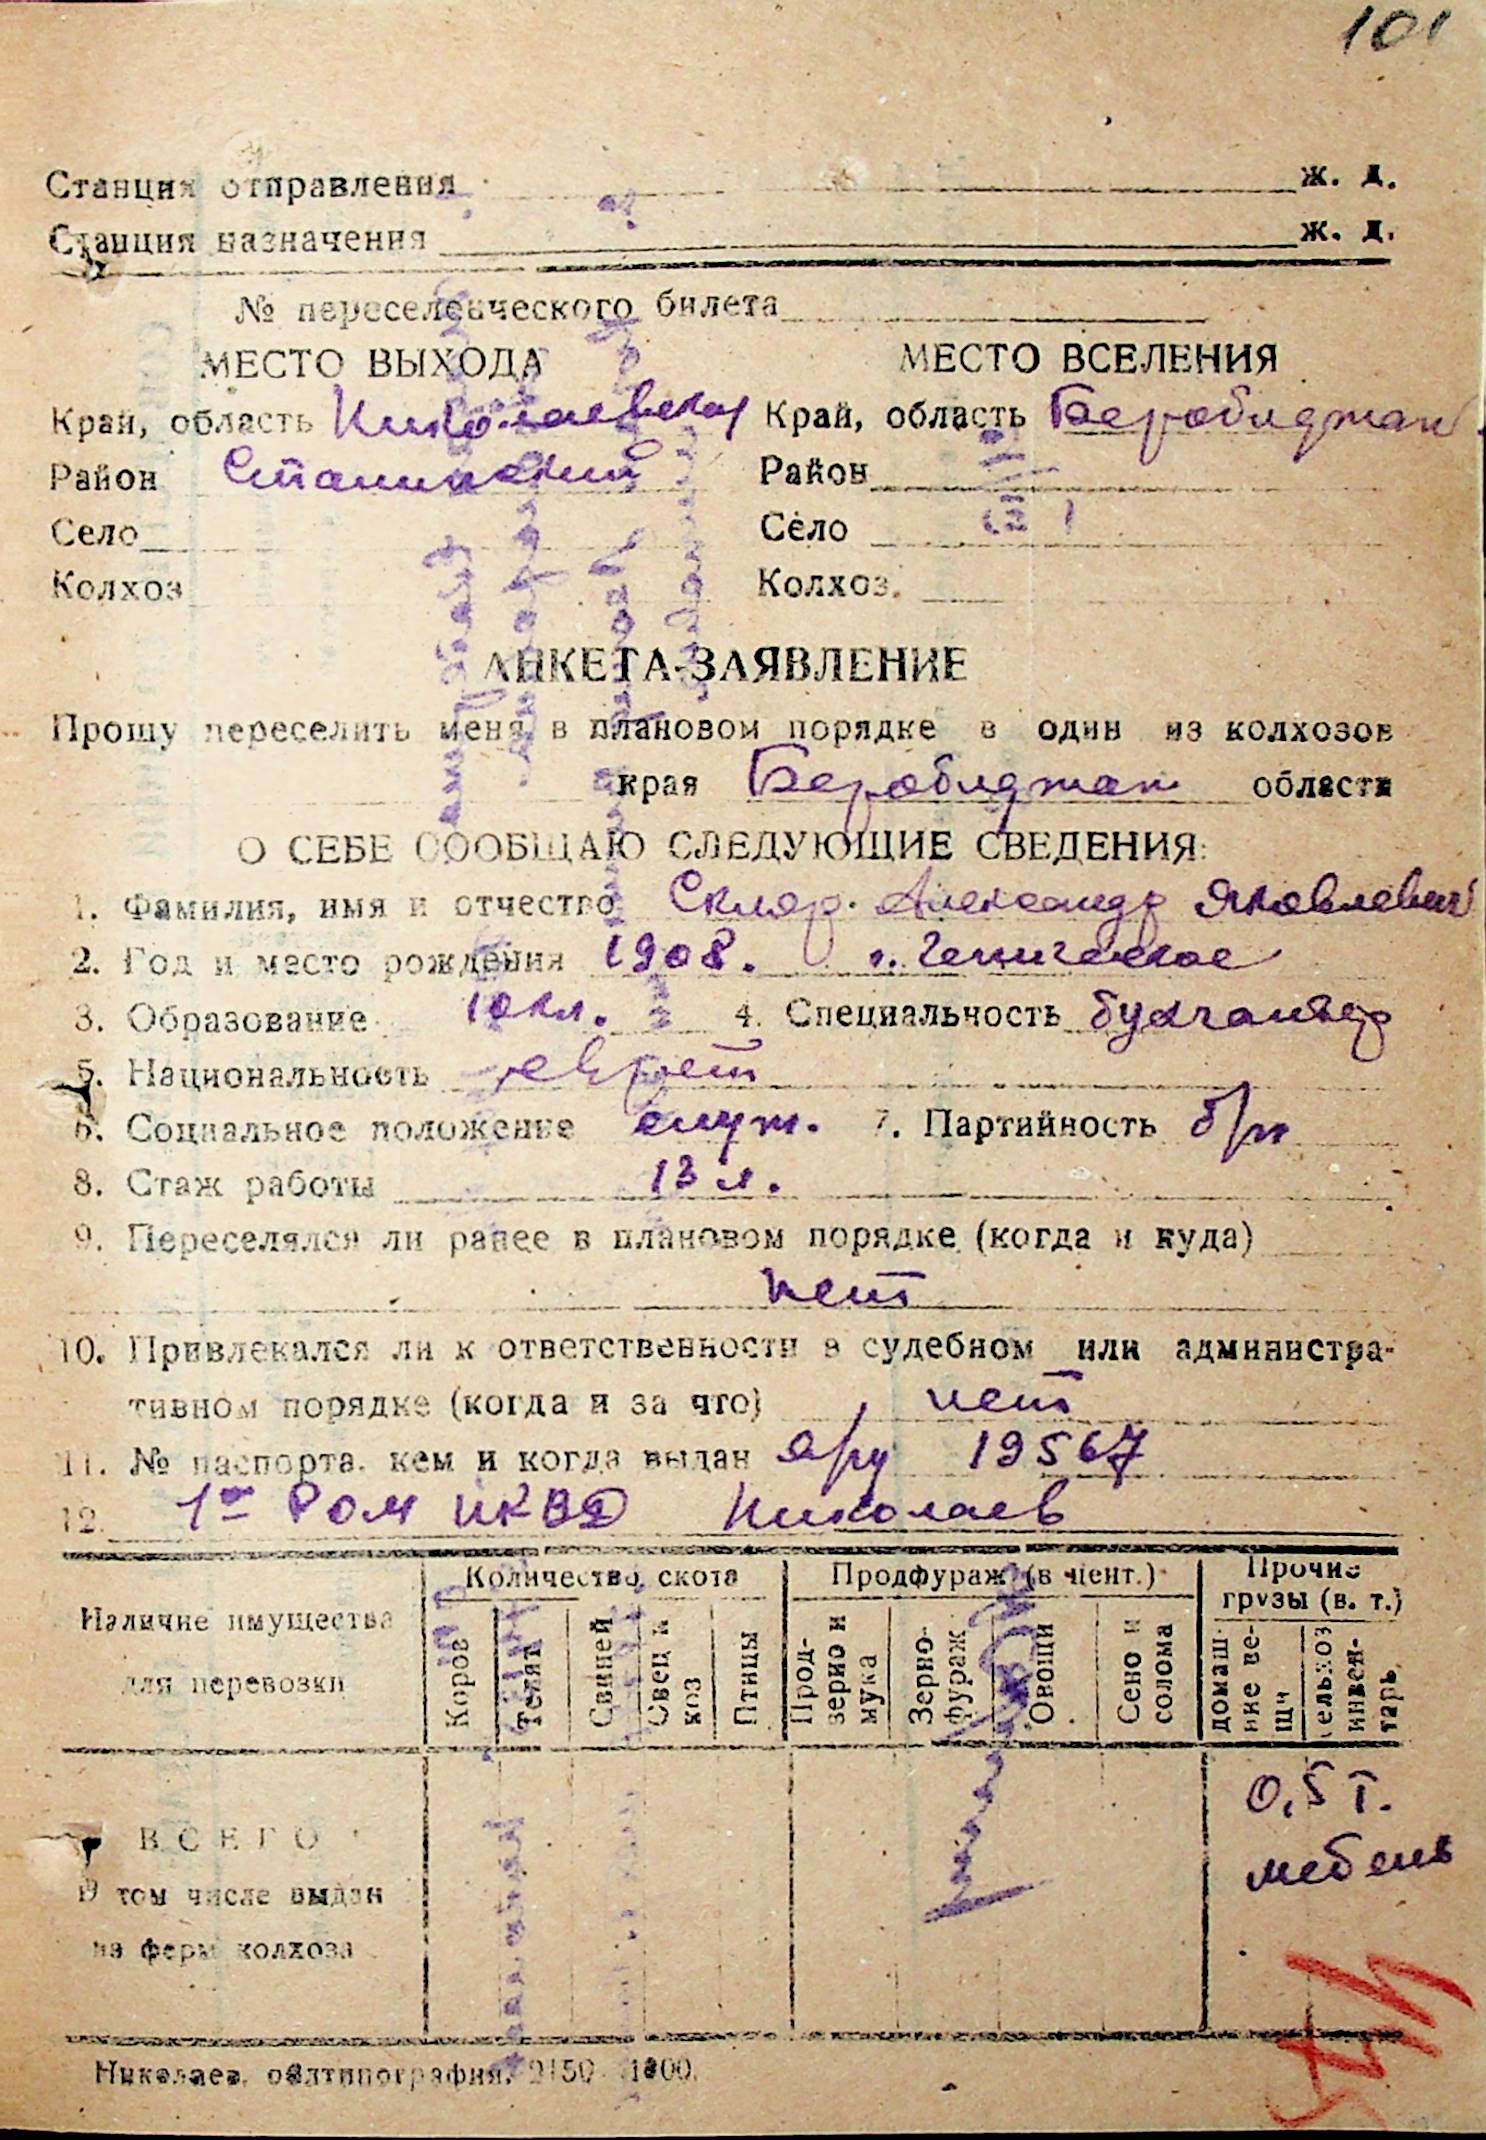 101
Станция отправления ж. д.
Станция назначения ж. д.
№ переселенческого билета
МЕСТО ВЫХОДА МЕСТО ВСЕЛЕНИЯ
Край, область Николаевская Край, область Беробиджан
Район Сталинский Район
Село Село
Колхоз Колхоз.
АНКЕТА-ЗАЯВЛЕНИЕ
Прошу переселить меня в плановом порядке в один из колхозов
края Беробиджан области
О СЕБЕ СООБЩАЮ СЛЕДУЮЩИЕ СВЕДЕНИЯ:
1. Фамилия, имя и отчество Скляр. Александр Яковлевич
2. Год и место рождения 1908. г. Геническое
3. Образование 10 кл. 4. Специальность бухгалтер
5. Национальность еврей
6. Социальное положение служ. 7. Партийность б/п
8. Стаж работы 13 л.
9. Переселялся ли ранее в плановом порядке (когда и куда)
нет
10. Привлекался ли к ответственности в судебном или администра-
тивном порядке (когда и за что) нет
11. № паспорта. кем и когда выдан 19567
12. 1м Ром НКВД Николаев
Наличие имущества для перевозки Количество скота Продфураж (в цент.) Прочие грузы (в. т.)
Коров телят Свиней Овец и коз Птицы Прод-зерно и мука Зерно-фураж Овощи Сено и солома домаш-ние ве-щи сельхоз инвен-тарь
0,5 т.
мебель
ВСЕГО
В том числе выдан
на ферм колхоза
Николаев, облтипография. 2150 1000.